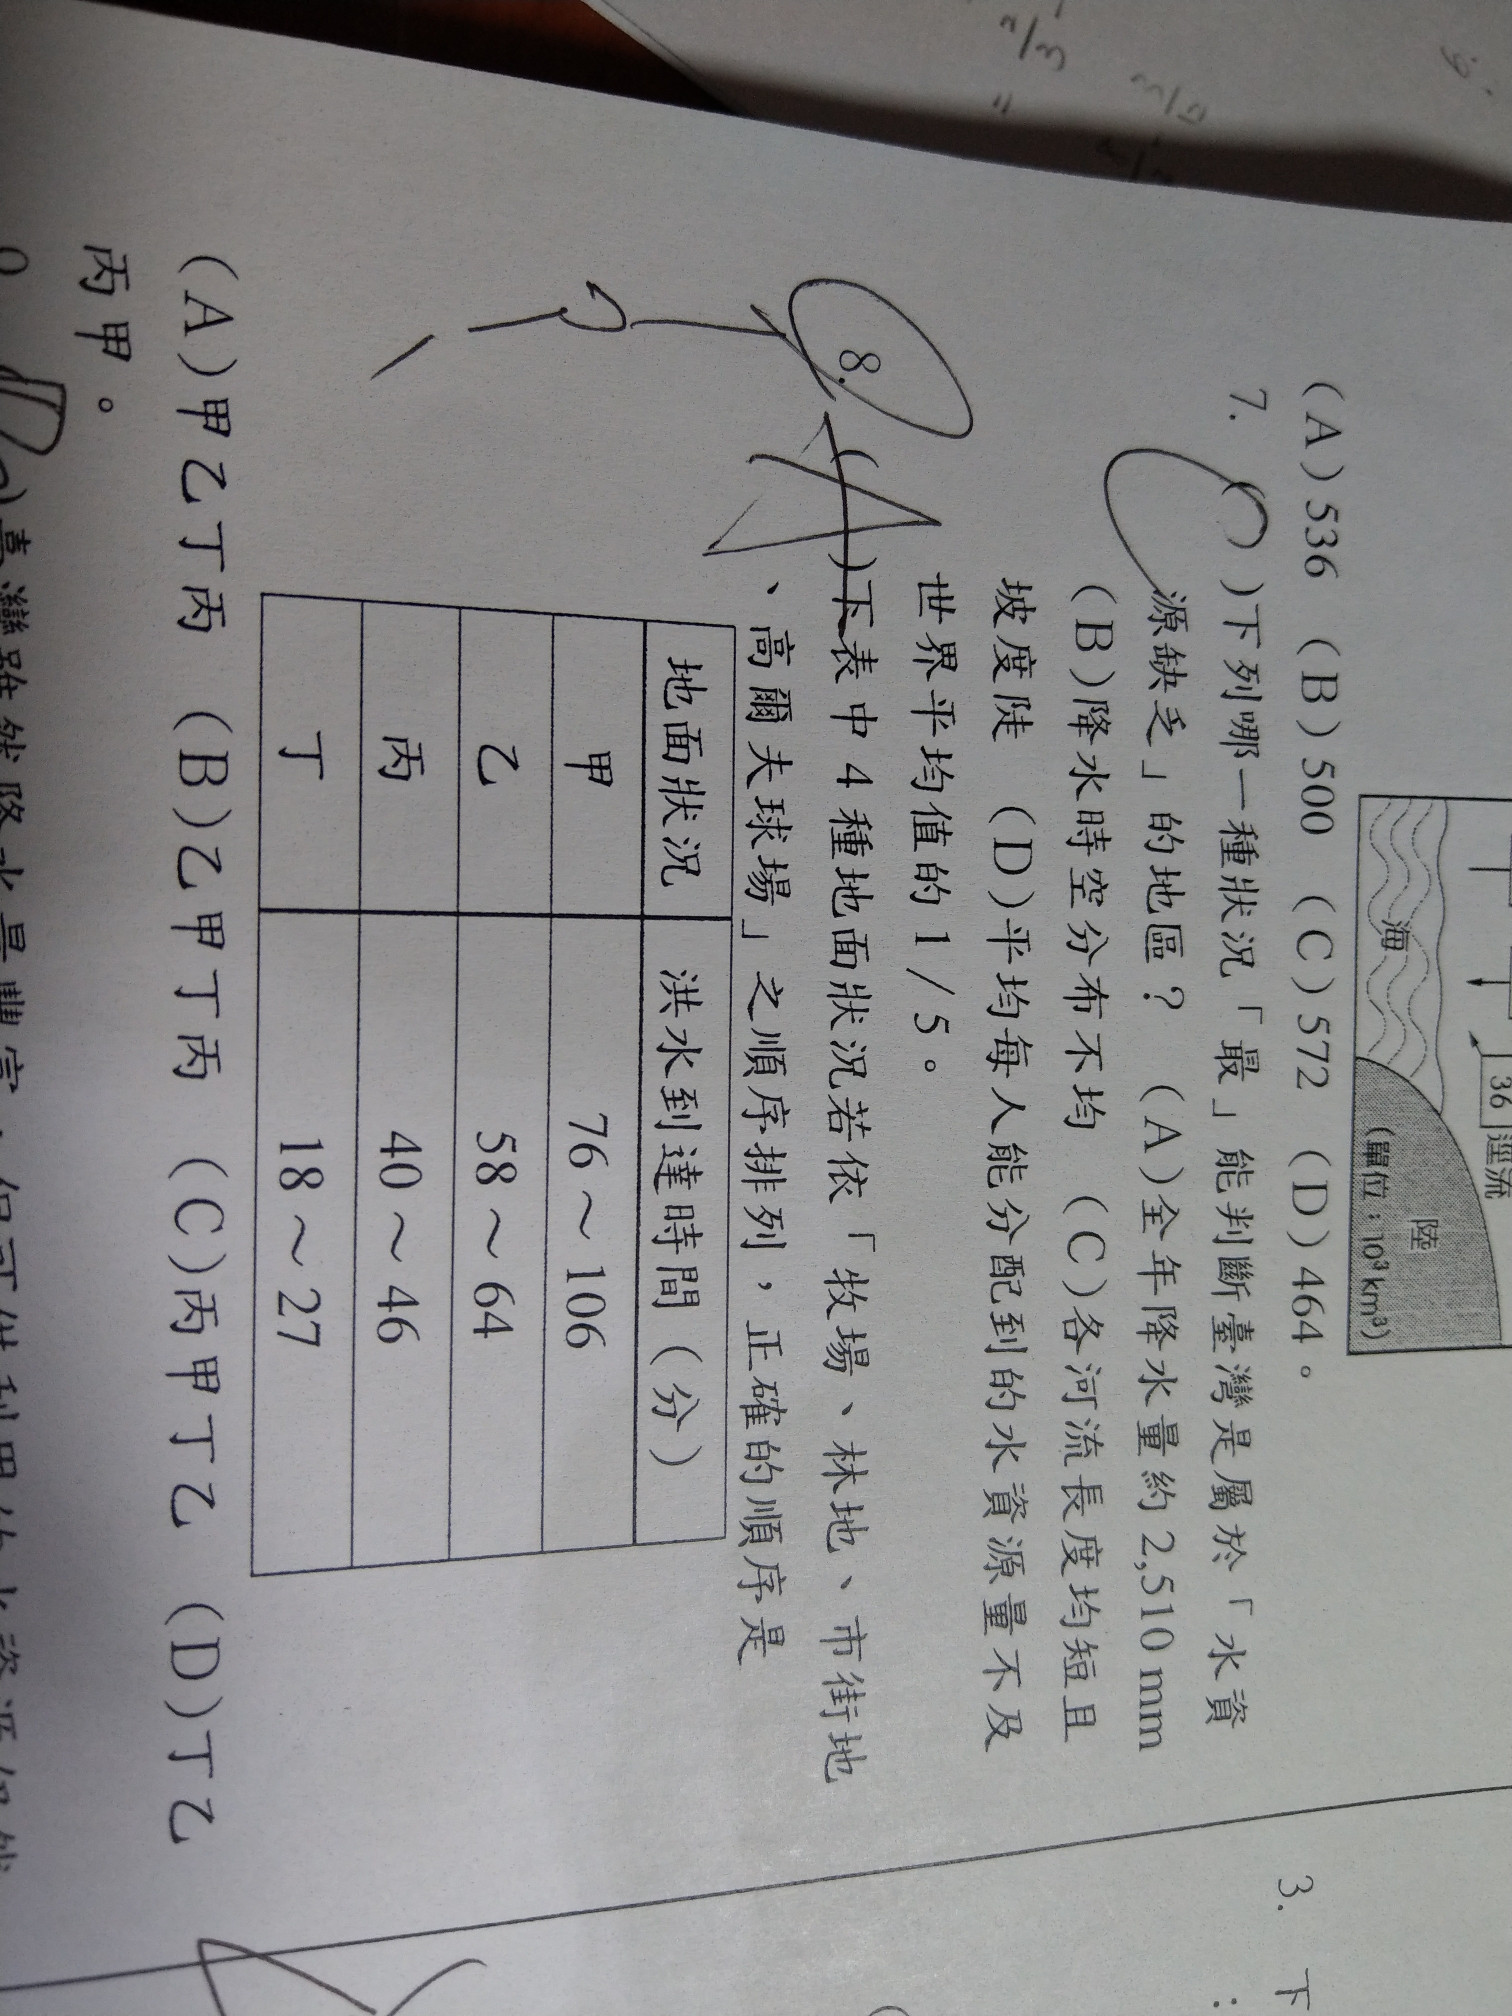 36 逕流
海
陸
(單位:10³km³)
(A)536 (B)500 (C)572 (D)464。
7. ( )下列哪一種狀況「最」能判斷臺灣是屬於「水資
源缺乏」的地區? (A)全年降水量約2,510 mm
(B)降水時空分布不均 (C)各河流長度均短且
坡度陡 (D)平均每人能分配到的水資源量不及
世界平均值的1/5。
8. ( )下表中4種地面狀況若依「牧場、林地、市街地
、高爾夫球場」之順序排列,正確的順序是
地面狀況 洪水到達時間(分)
甲 76~106
乙 58~64
丙 40~46
丁 18~27
(A)甲乙丁丙 (B)乙甲丁丙 (C)丙甲丁乙 (D)丁乙
丙甲。
3. 下